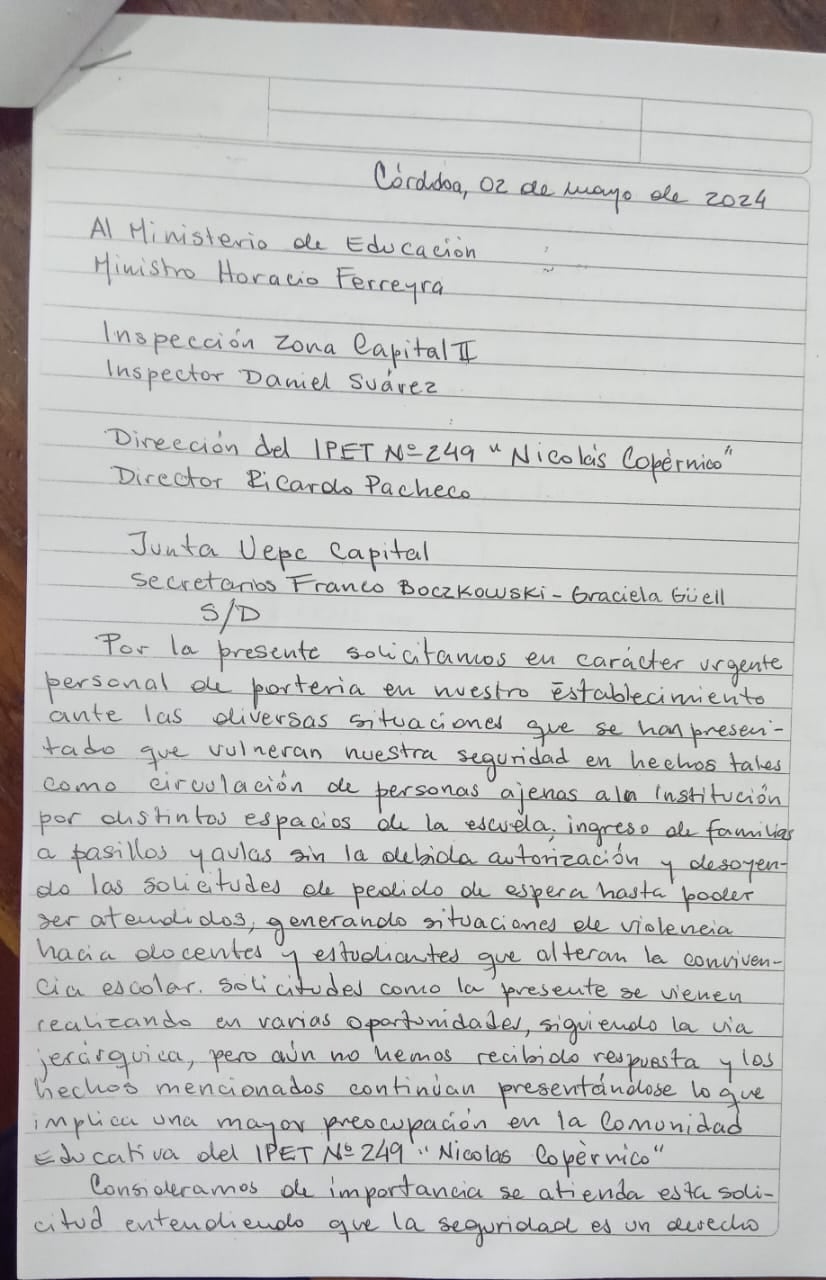 Córdoba, 02 de mayo de 2024
Al Ministerio de Educación
Ministro Horacio Ferreyra
Inspección Zona Capital II
Inspector Daniel Suárez
Dirección del IPET Nº 249 "Nicolás Copérnico"
Director Ricardo Pacheco
Junta Uepc Capital
Secretarios Franco Boczkowski - Graciela Güell
S/D
Por la presente solicitamos en carácter urgente
personal de portería en nuestro Establecimiento
ante las diversas situaciones que se han presen-
tado que vulneran nuestra seguridad en hechos tales
como circulación de personas ajenas a la Institución
por distintos espacios de la escuela, ingreso de familias
a pasillos y aulas sin la debida autorización y desoyen-
do las solicitudes de pedido de espera hasta poder
ser atendidos, generando situaciones de violencia
hacia docentes y estudiantes que alteran la conviven-
cia escolar. Solicitudes como la presente se vienen
realizando en varias oportunidades, siguiendo la vía
jerárquica, pero aún no hemos recibido respuesta y los
hechos mencionados continúan presentándose lo que
implica una mayor preocupación en la Comunidad
Educativa del IPET Nº 249 "Nicolas Copérnico"
Consideramos de importancia se atienda esta soli-
citud entendiendo que la seguridad es un derecho